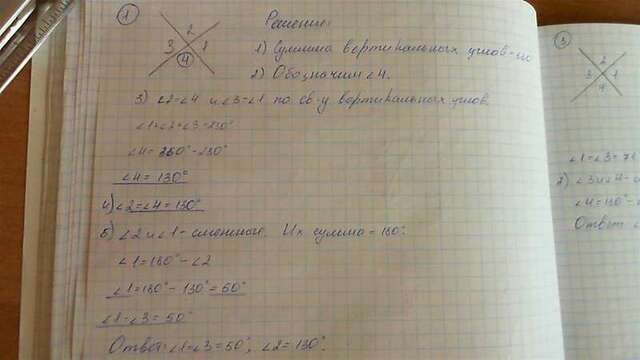 1
2
3 1
4
Решение:
1) Сумма вертикальных углов
2) Обозначим ∠4.
3) ∠2=∠4 и ∠3=∠1 по св-у вертикальных углов
∠1+∠2+∠3=230°
∠4=360°-230°
∠4=130°
4) ∠2=∠4=130°
5) ∠2 и ∠1- Их сумма=180°.
∠1=180°-∠2
∠1=180°-130°=50°
∠1=∠3=50°
Ответ: ∠1=∠3=50°, ∠2=130°.
3
2
3 1
4
∠1=∠3=
2) ∠3 и ∠4-
∠4=180°-
Ответ: ∠